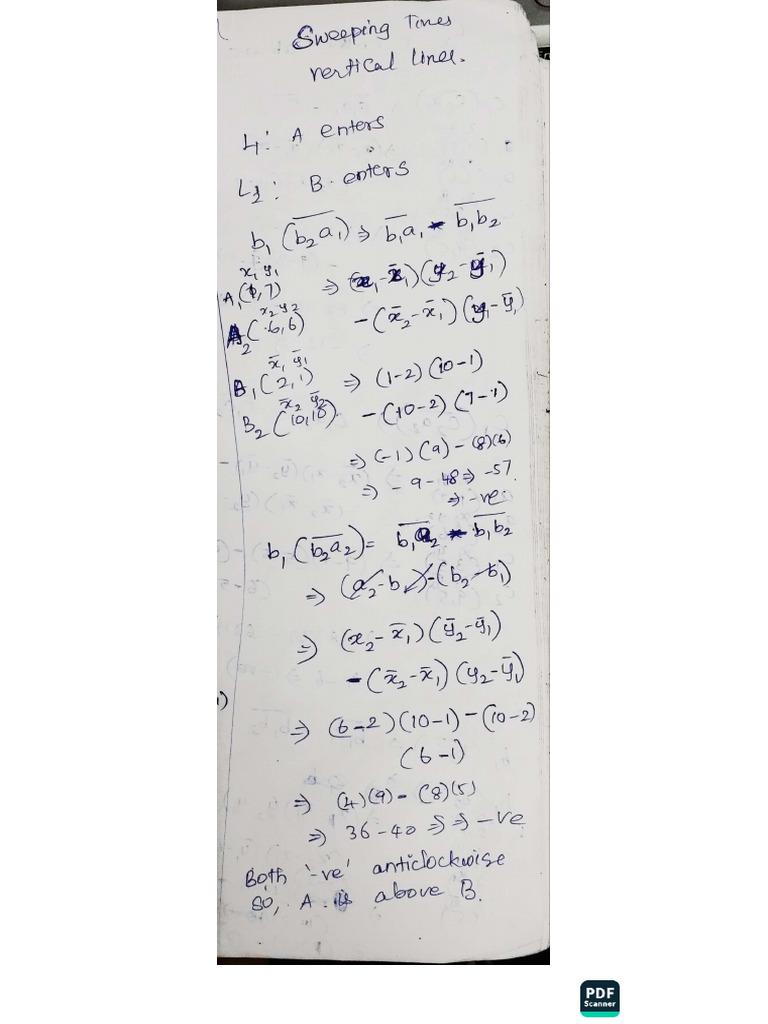 Sweeping Times
vertical lines.
L1: A enters
L2: B. enters
b₁ (b̅₂a̅₁) ⇒ b̅₁a̅₁ * b̅₁b̅₂
x₁ y₁
A₁(1,7) ⇒ (x₁-x̄₁)(y₂-ȳ₁)
x₂ y₂
A₂(6,6) -(x̄₂-x̄₁)(y₁-ȳ₁)
x̄₁ ȳ₁
B₁(2,1) ⇒ (1-2)(10-1)
x̄₂ ȳ₂
B₂(10,10) -(10-2)(7-1)
⇒ (-1)(9) - (8)(6)
⇒ -9-48 ⇒ -57
⇒ -ve.
b₁(b̅₂a̅₂) = b̅₁a̅₂ * b̅₁b̅₂
⇒ (a₂-b₁)-(b₂-b₁)
⇒ (x₂-x̄₁)(ȳ₂-ȳ₁)
-(x̄₂-x̄₁)(y₂-ȳ₁)
⇒ (6-2)(10-1)-(10-2)
(6-1)
⇒ (4)(9) - (8)(5)
⇒ 36-40 ⇒ ⇒ -ve
Both '-ve' anticlockwise
so, A is above B.
PDF
Scanner